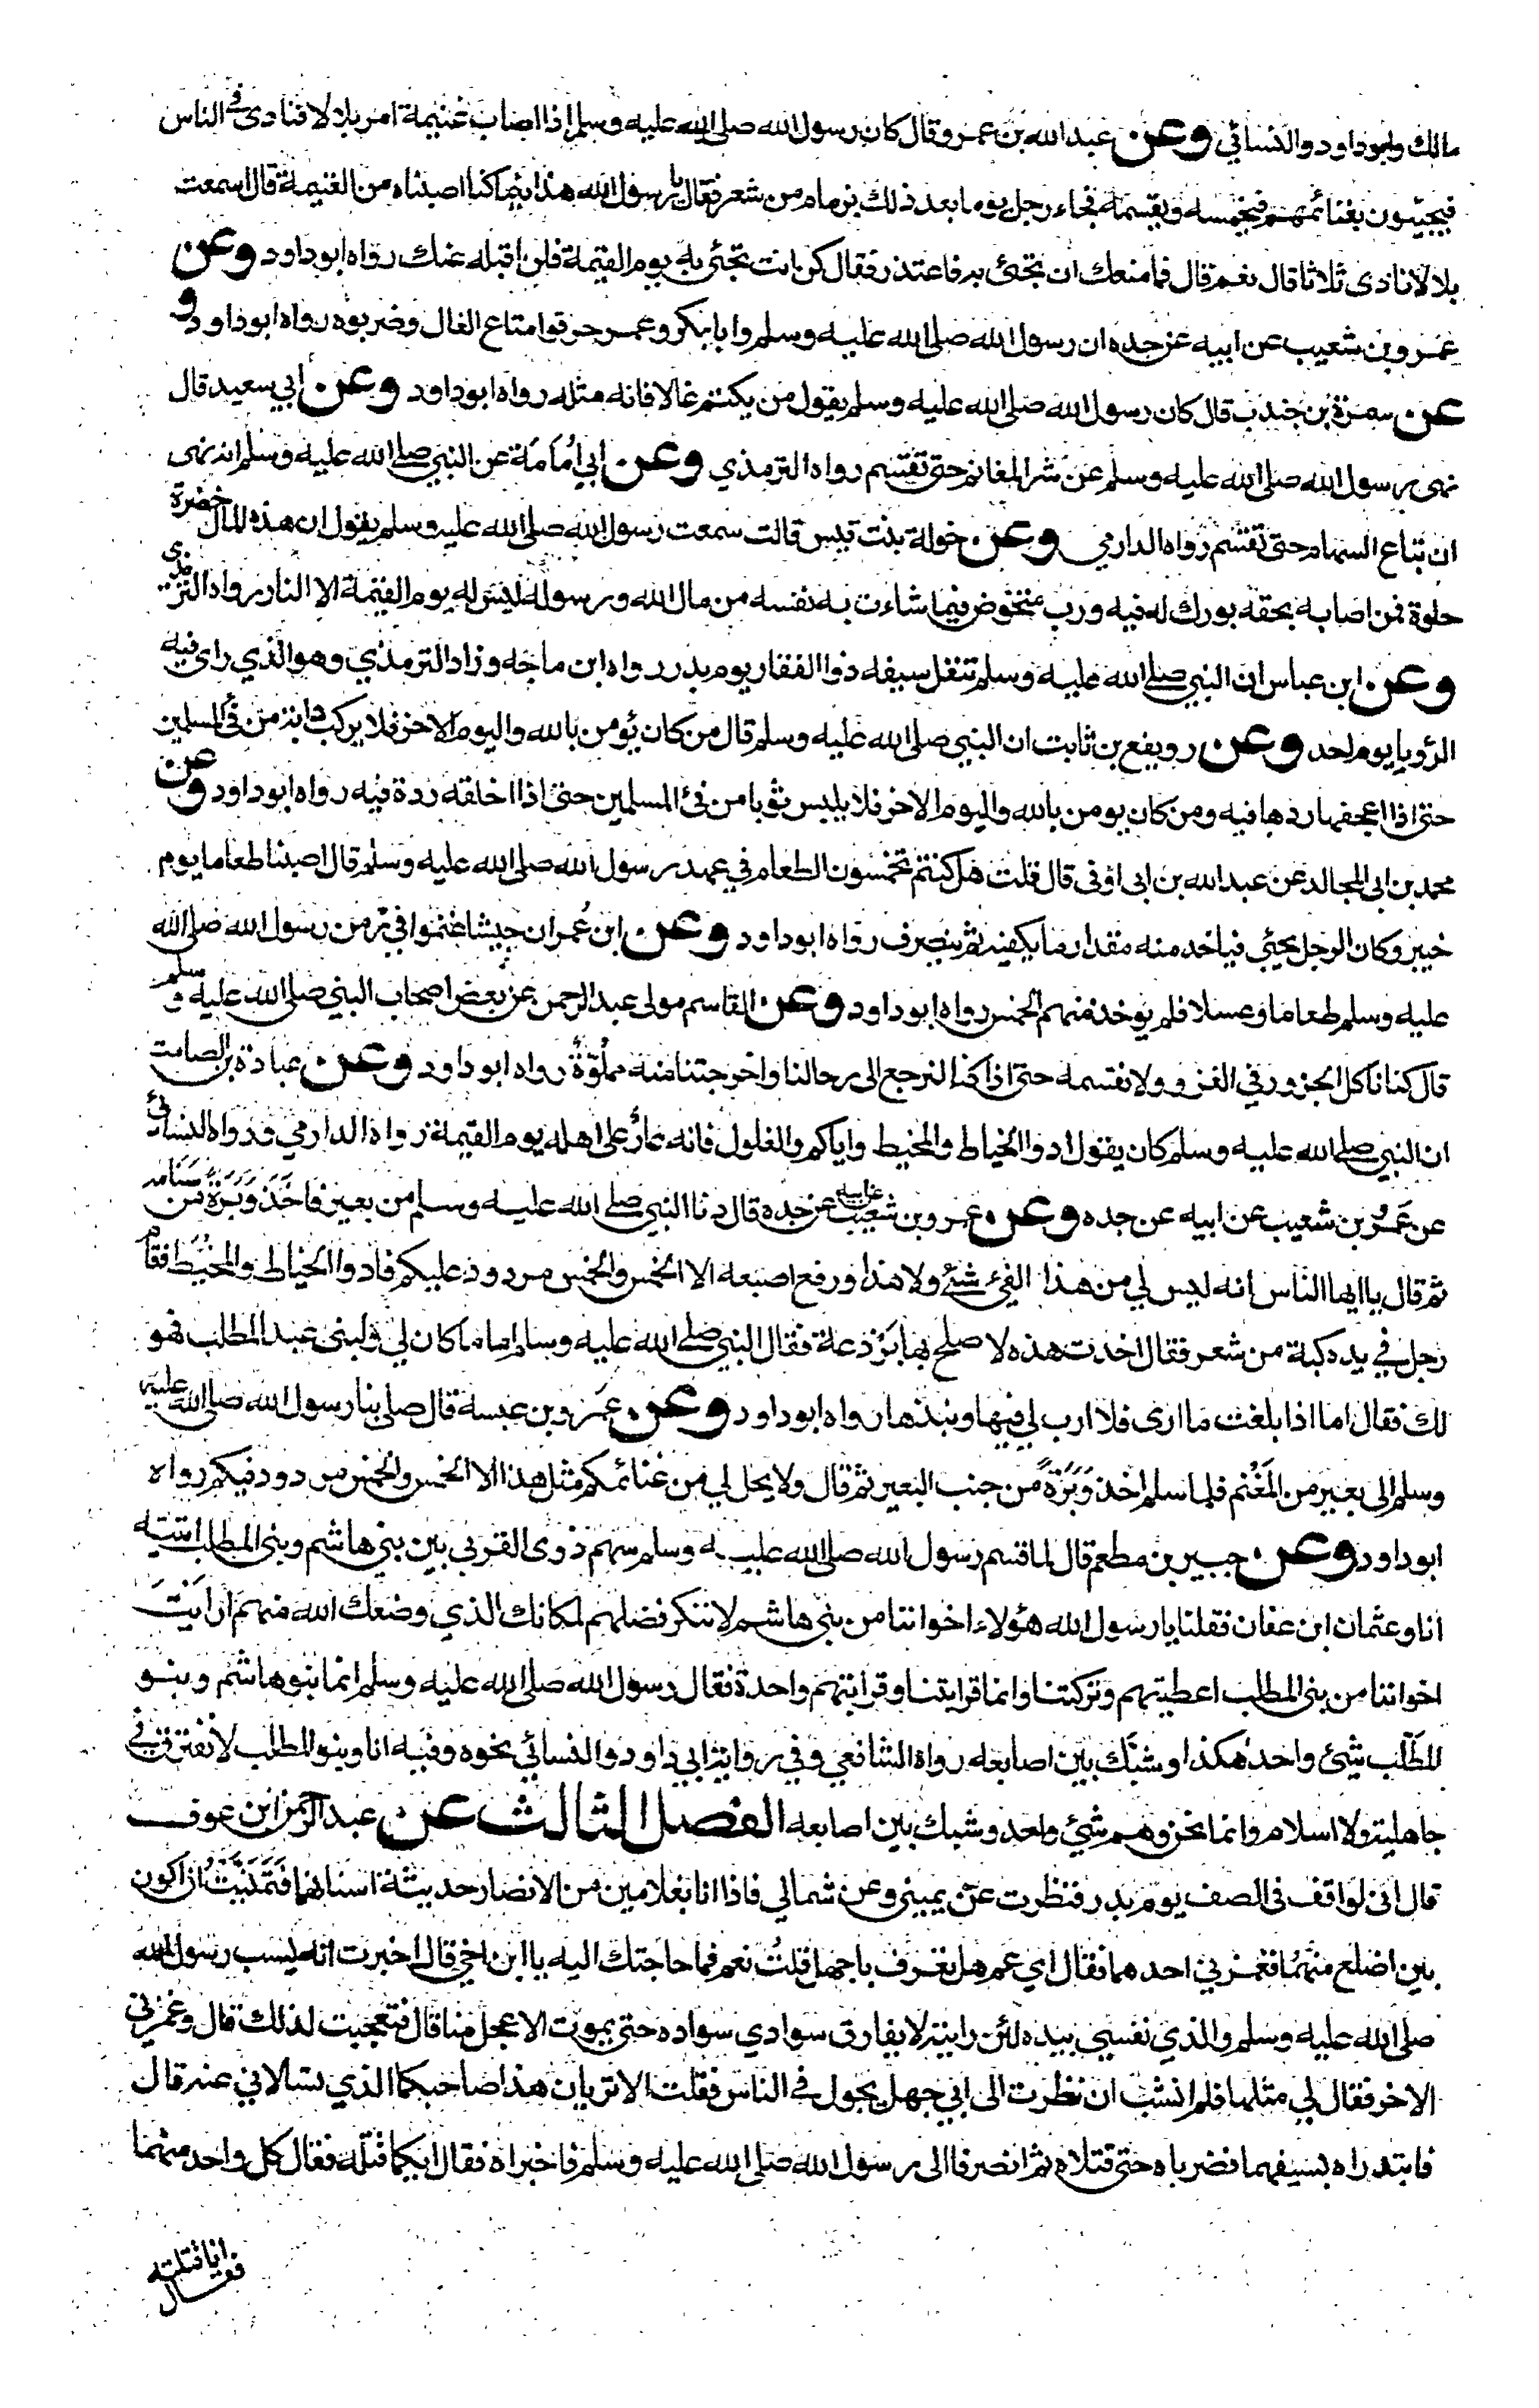 مالك وابوداود والنسائي وعن عبد الله بن عمرو قال كان رسول الله صلى الله عليه وسلم اذا اصاب غنيمة امر بلالا فنادى في الناس
فيجيئون بغنائمهم فيخمسه ويقسمه فجاء رجل يوما بعد ذلك بزمام من شعر فقال يا رسول الله هذا فيما كنا اصبناه من الغنيمة قال اسمعت
بلالا نادى ثلاثا قال نعم قال فما منعك ان تجئ به فاعتذر فقال كن انت تجئ به يوم القيمة فلن اقبله عنك رواه ابوداود وعن
عمرو بن شعيب عن ابيه عن جده ان رسول الله صلى الله عليه وسلم وابا بكر وعمر حرقوا متاع الغال وضربوه رواه ابوداود و
عن سمرة بن جندب قال كان رسول الله صلى الله عليه وسلم يقول من يكتم غالا فانه مثله رواه ابوداود وعن أبي سعيد قال
نهى رسول الله صلى الله عليه وسلم عن شر المغانم حتى تقسم رواه الترمذي وعن ابي أمامة عن النبي صلى الله عليه وسلم انه نهى
ان تباع السهام حتى تقسم رواه الدارمي وعن خولة بنت قيس قالت سمعت رسول الله صلى الله عليه وسلم يقول ان هذه المال خضرة
حلوة فمن اصابه بحقه بورك له فيه ورب متخوض فيما شاءت به نفسه من مال الله ورسوله ليس له يوم القيمة الا النار رواه الترمذي
وعن ابن عباس ان النبي صلى الله عليه وسلم تنفل سيفه ذوا الفقار يوم بدر رواه ابن ماجه وزاد الترمذي وهو الذي راى فيه
الرؤيا يوم احد وعن رويفع بن ثابت ان النبي صلى الله عليه وسلم قال من كان يؤمن بالله واليوم الاخر فلا يركب دابة من فئ المسلمين
حتى اذا اعجفها ردها فيه ومن كان يومن بالله واليوم الاخر فلا يلبس ثوبا من فئ المسلمين حتى اذا اخلقه ردة فيه رواه ابوداود وعن
محمد بن ابى المجالد عن عبد الله بن ابى اوفى قال قلت هل كنتم تخمسون الطعام في عهد رسول الله صلى الله عليه وسلم قال اصبنا طعاما يوم
خيبر وكان الرجل يجئ فياخد منه مقدار ما يكفيه ثم ينصرف رواه ابوداود وعن ابن عمر ان جيشا غنموا في زمن رسول الله صلى الله
عليه وسلم طعاما وعسلا فلم يوخذ منهم الخمس رواه ابوداود وعن القاسم مولى عبد الرحمن عن بعض اصحاب النبي صلى الله عليه وسلم
قال كنا ناكل الجزور في الغزو ولا نقسمه حتى اذا كنا لنرجع الى رحالنا واخرجتنا منه مملوّة رواه ابوداود وعن عبادة بن الصامت
ان النبي صلى الله عليه وسلم كان يقول ادوا الخياط والمخيط واياكم والغلول فانه عار على اهله يوم القيمة رواه الدارمي ورواه النسائي
عن عمرو بن شعيب عن ابيه عن جده وعن عمرو بن شعيب عن ابيه عن جده قال دنا النبي صلى الله عليه وسلم من بعير فاخذ وبرة من سنامه
ثم قال يا ايها الناس انه ليس لي من هذا الفئ شئ ولا هذا ورفع اصبعه الا الخمس والخمس مردود عليكم فادوا الخياط والمخيط فقام
رجل في يده كبة من شعر فقال اخدت هذه لا صلح بها برذعة فقال النبي صلى الله عليه وسلم اما ما كان لي ولبنى عبد المطلب فهو
لك فقال اما اذا بلغت ما ارى فلا ارب لي فيها ونبذها رواه ابوداود وعن عمرو بن عبسة قال صلى بنا رسول الله صلى الله عليه
وسلم الى بعير من المغنم فلما سلم اخذ وبرة من جنب البعير ثم قال ولا يحل لي من غنائمكم مثل هذا الا الخمس والخمس مردود فيكم رواه
ابوداود وعن جبير بن مطعم قال لما قسم رسول الله صلى الله عليه وسلم سهم ذوى القربى بين بني هاشم وبنى المطلب اتيته
انا وعثمان ابن عفان فقلنا يا رسول الله هؤلاء اخواننا من بنى هاشم لا ننكر فضلهم لمكانك الذي وضعك الله منهم ارايت
اخواننا من بنى المطلب اعطيتهم وتركتنا وانما قرابتنا وقرابتهم واحدة فقال رسول الله صلى الله عليه وسلم انما بنو هاشم وبنو
المطلب شئ واحد هكذا وشبك بين اصابعه رواه الشافعي وفي رواية ابي داود والنسائي نحوه وفيه انا وبنو المطلب لا نفترق في
جاهلية ولا اسلام وانما نحن وهم شئ واحد وشبك بين اصابعه الفصل الثالث عن عبد الرحمن ابن عوف
قال انى لواقف فى الصف يوم بدر فنظرت عن يميني وعن شمالي فاذا انا بغلامين من الانصار حديثة اسنانهما فتمنيت ان اكون
بين اضلع منهما فغمزني احدهما فقال اي عم هل تعرف باجهل قلت نعم فما حاجتك اليه يا ابن اخي قال اخبرت انه يسب رسول الله
صلى الله عليه وسلم والذي نفسي بيده لئن رايته لا يفارق سوادي سواده حتى يموت الاعجل منا قال فتعجبت لذلك قال وغمزني
الاخر فقال لي مثلها فلم انشب ان نظرت الى ابي جهل يجول في الناس فقلت الا تريان هذا صاحبكما الذي تسالاني عنه قال
فابتدراه بسيفهما فضرباه حتى قتلاه ثم انصرفا الى رسول الله صلى الله عليه وسلم فاخبراه فقال ايكما قتله فقال كل واحد منهما
انا قتلته
فقال